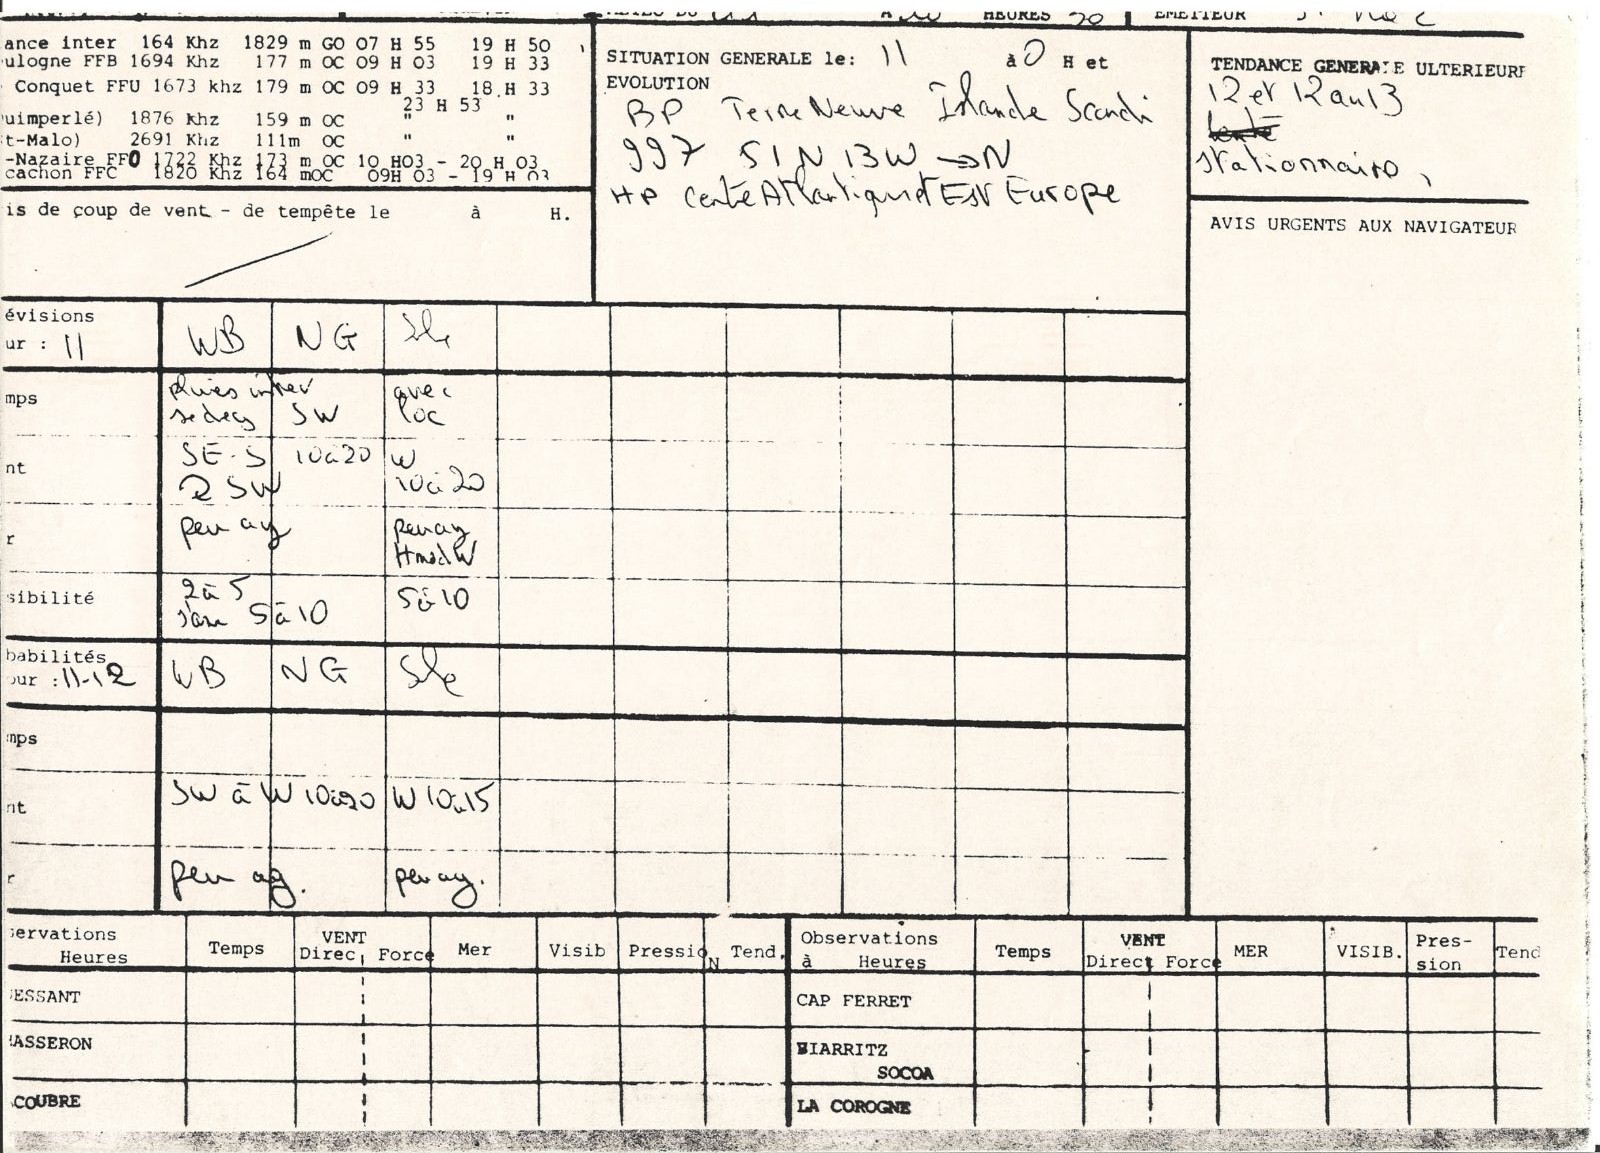 HEURES 30 EMETTEUR
ance inter 164 Khz 1829 m GO 07 H 55 19 H 50
ulogne FFB 1694 Khz 177 m OC 09 H 03 19 H 33
Conquet FFU 1673 khz 179 m OC 09 H 33 18 H 33
23 H 53
uimperlé) 1876 Khz 159 m OC " "
t-Malo) 2691 Khz 111m OC " "
-Nazaire FFO 1722 Khz 173 m OC 10 H03 - 20 H 03
cachon FFC 1820 Khz 164 mOC 09H 03 - 19 H 03
is de coup de vent - de tempête le à H.
SITUATION GENERALE le: 11 à 0 H et
EVOLUTION
BP Terre Neuve Islande Scandi
997 51N 13W → N
HP Atlantique et Est Europe
TENDANCE GENERALE ULTERIEURE
12 et 12 au 13
stationnaire
AVIS URGENTS AUX NAVIGATEUR
évisions
ur : 11 WB NG Sle
mps pluies inter avec
SW loc
nt SE-S 10à20 W
SW 10à20
r peu ag peu ag
HmodW
sibilité 2à5 5à10
5à10
babilités
our : 11-12 WB NG Sle
mps
nt SW à W 10à20 W 10à15
r peu ag. peu ag.
servations Heures Temps VENT Direc, Force Mer Visib Pression Tend.
ESSANT
ASSERON
COUBRE
Observations à Heures Temps VENT Direct Force MER VISIB. Pres-sion Tend
CAP FERRET
BIARRITZ
SOCOA
LA COROGNE